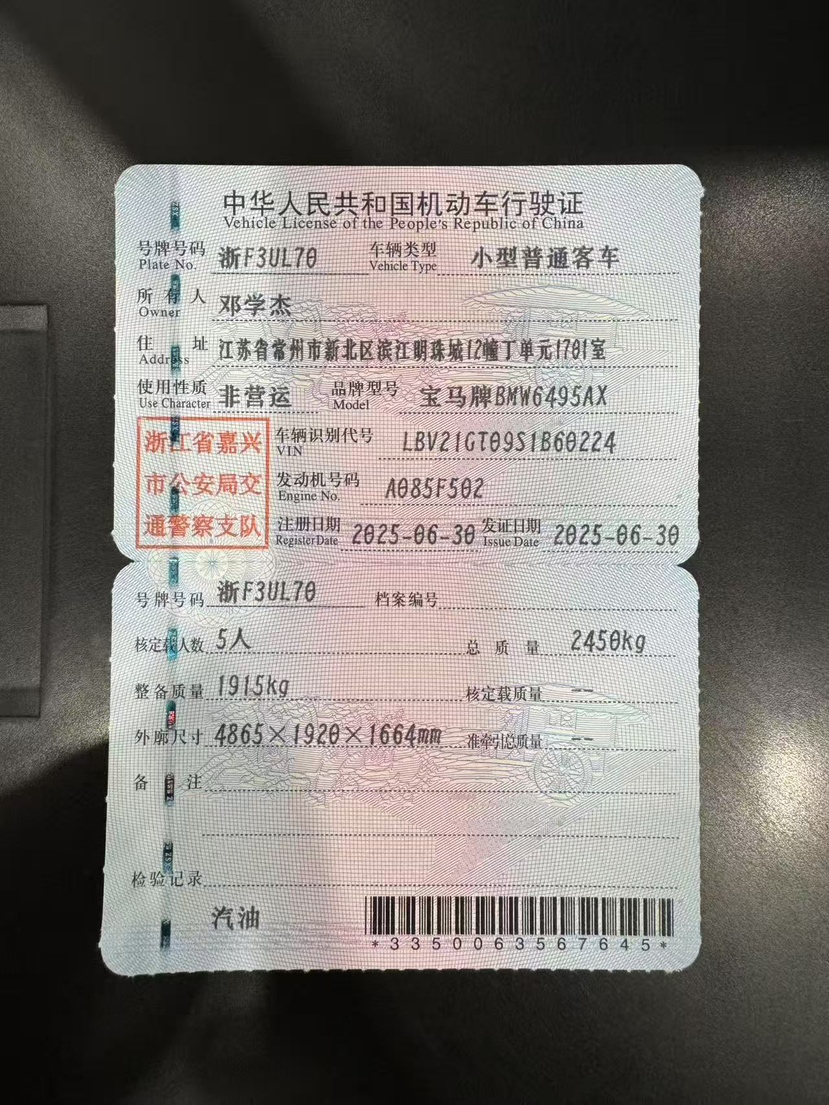 中华人民共和国机动车行驶证
Vehicle License of the People's Republic of China
号牌号码 浙F3UL70 车辆类型 小型普通客车
Plate No. Vehicle Type
所有人 邓学杰
Owner
住址 江苏省常州市新北区滨江明珠城12幢丁单元1701室
Address
使用性质 非营运 品牌型号 宝马牌BMW6495AX
Use Character Model
浙江省嘉兴
市公安局交
通警察支队
车辆识别代号 LBV21GT09S1B60224
VIN
发动机号码 A085F502
Engine No.
注册日期 2025-06-30 发证日期 2025-06-30
Register Date Issue Date
号牌号码 浙F3UL70 档案编号
核定载人数 5人 总质量 2450kg
整备质量 1915kg 核定载质量 --
外廓尺寸 4865×1920×1664mm 准牵引总质量 --
备注
检验记录
汽油
*3350063567645*